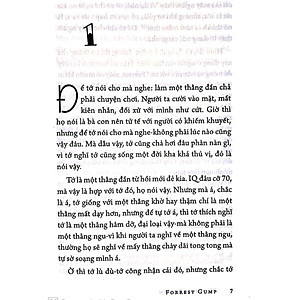 1
Để tớ nói cho mà nghe: làm một thằng đần chả
phải chuyện chơi. Người ta cười vào mặt, mất
kiên nhẫn, đối xử với mình như cứt. Giờ thì
họ nói là bà con nên tử tế với người có khiếm khuyết,
nhưng để tớ nói cho mà nghe-không phải lúc nào cũng
vậy đâu. Mà dầu vậy, tớ cũng chả hơi đâu phàn nàn gì,
vì tớ nghĩ tớ cũng sống một đời kha khá thú vị, đó là
nói vậy.
Tớ là một thằng đần từ hồi mới đẻ kia. IQ đâu cỡ 70,
mà vậy là hợp với tớ đó, họ nói vậy. Nhưng mà á, chắc
là á, tớ giống với một thằng khờ hay thậm chí là một
thằng mát dạy hơn, nhưng để tự tớ á, thì tớ thích nghĩ
tớ là một thằng hâm dở, đại loại vậy-mà không phải là
một thằng ngu-vì khi người ta nghĩ về một thằng ngu,
thường họ sẽ nghĩ về mấy thằng chảy dãi tong tong mà
tự sờ soạng mình á.
Ờ thì tớ lù đù-tớ công nhận cái đó, nhưng chắc tớ
FORREST GUMP 7